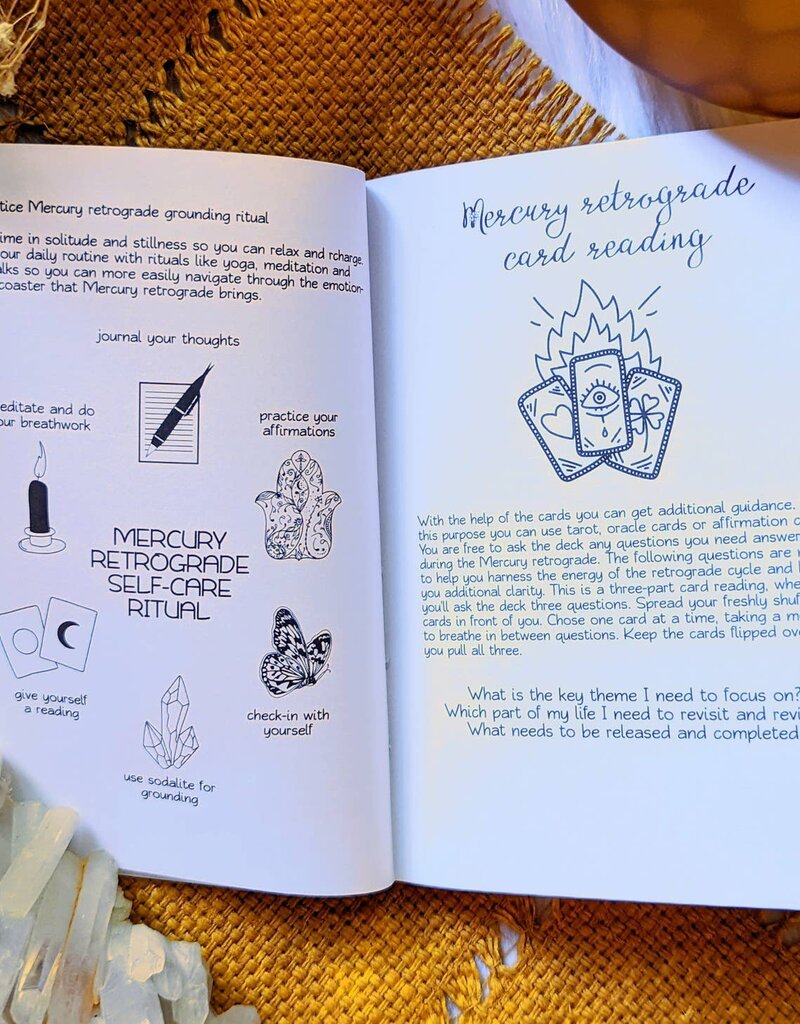 tice Mercury retrograde grounding ritual
ime in solitude and stillness so you can relax and rcharge.
our daily routine with rituals like yoga, meditation and
alks so you can more easily navigate through the emotion-
coaster that Mercury retrograde brings.
journal your thoughts
editate and do
our breathwork
practice your
affirmations
MERCURY
RETROGRADE
SELF-CARE
RITUAL
give yourself
a reading
check-in with
yourself
use sodalite for
grounding
Mercury retrograde
card reading
With the help of the cards you can get additional guidance.
this purpose you can use tarot, oracle cards or affirmation
You are free to ask the deck any questions you need answer
during the Mercury retrograde. The following questions are
to help you harness the energy of the retrograde cycle and
you additional clarity. This is a three-part card reading, whe
you'll ask the deck three questions. Spread your freshly shuf
cards in front of you. Chose one card at a time, taking a m
to breathe in between questions. Keep the cards flipped ov
you pull all three.
What is the key theme I need to focus on?
Which part of my life I need to revisit and revi
What needs to be released and completed